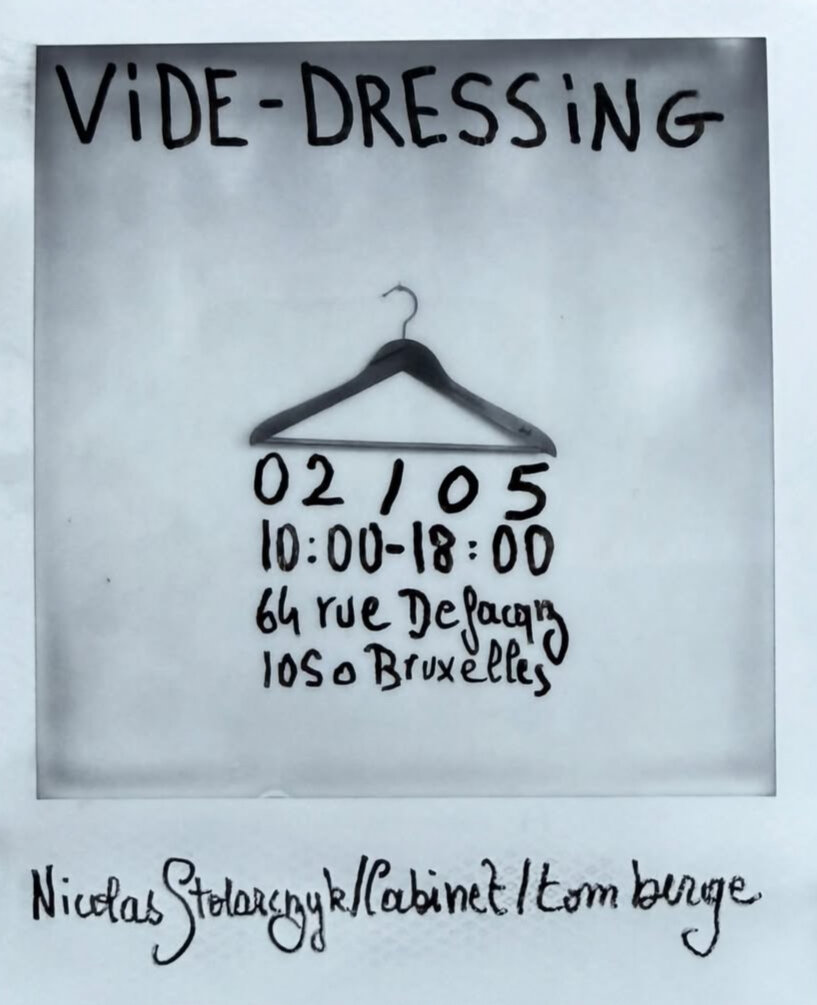 ViDE-DRESSiNG
02/05
10:00-18:00
64 rue Defacqz
1050 Bruxelles
Nicolas Stolarczyk/Cabinet/tom berge